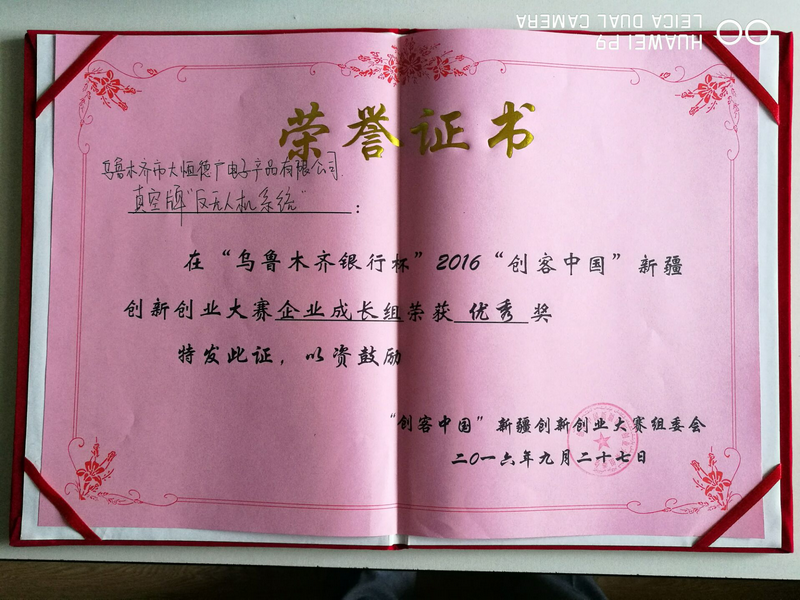 HUAWEI P9
LEICA DUAL CAMERA
荣誉证书
乌鲁木齐市大恒德广电子产品有限公司
真空牌“反无人机系统”：
在“乌鲁木齐银行杯”2016“创客中国”新疆
创新创业大赛企业成长组荣获 优秀 奖
特发此证，以资鼓励
“创客中国”新疆创新创业大赛组委会
二〇一六年九月二十七日